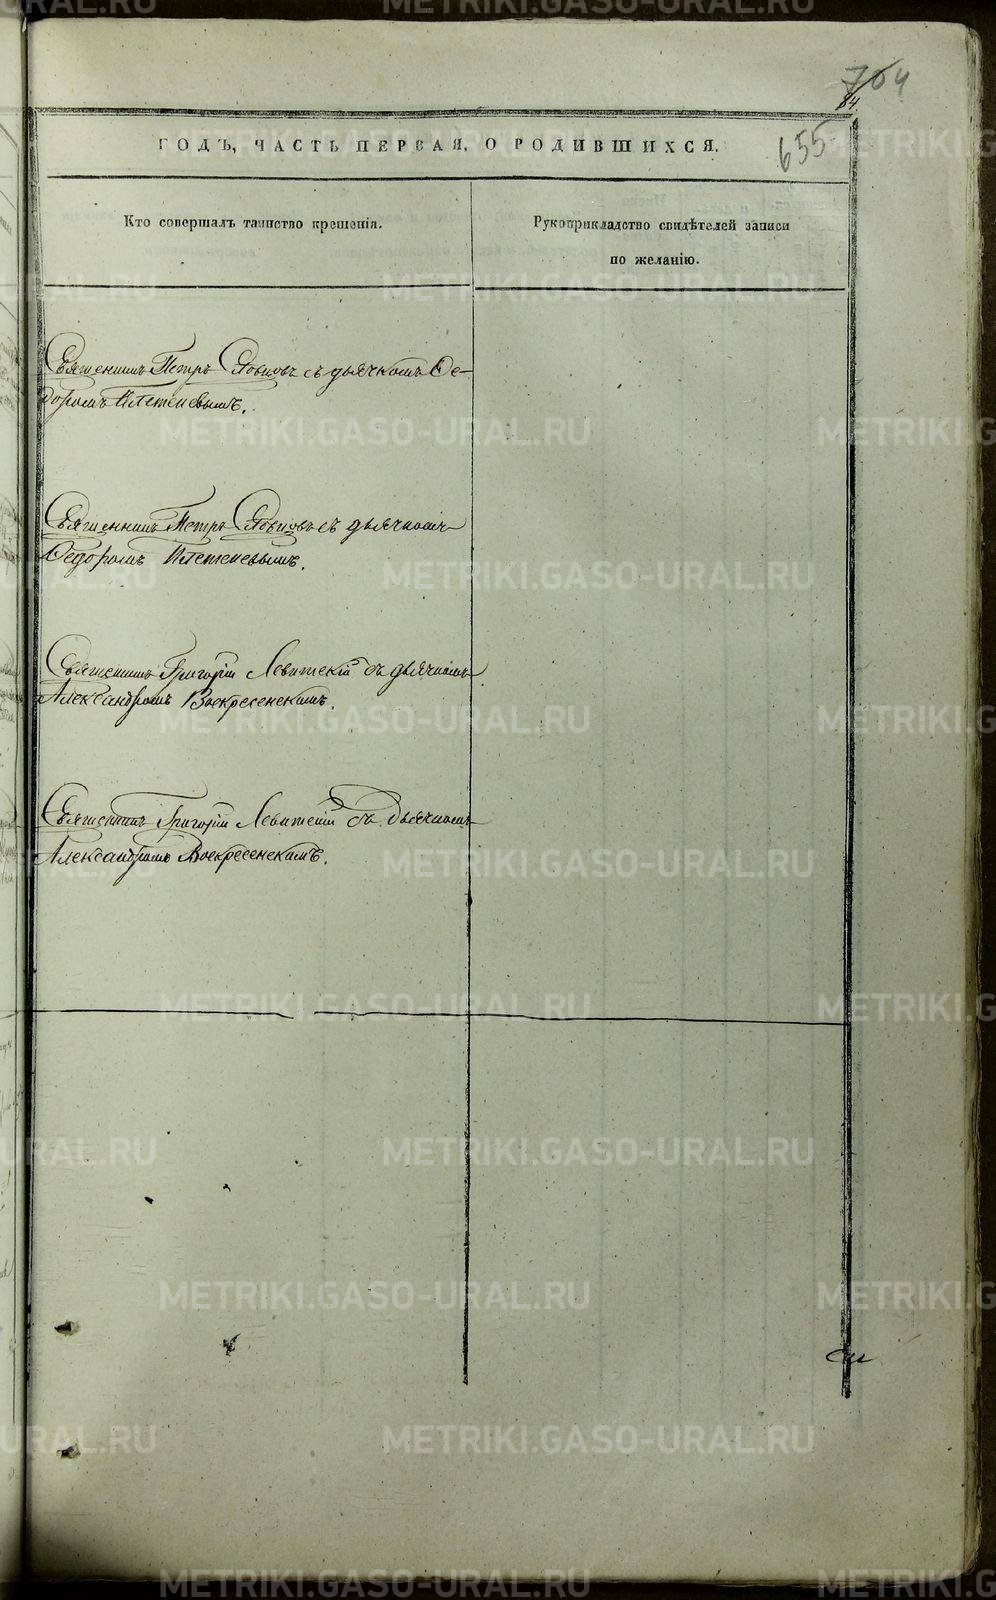 704
84
655
ГОДЪ, ЧАСТЬ ПЕРВАЯ, О РОДИВШИХСЯ.
Кто совершалъ таинство крещенія.
Рукоприкладство свидѣтелей записи
по желанію.
Священникъ Петръ съ дьячкомъ Ѳе-
доромъ Плетеневымъ.
Священникъ Петръ съ дьячкомъ
Ѳедоромъ Плетеневымъ.
Священникъ Григорій Левитскій съ дьячкомъ
Александромъ Воскресенскимъ.
Священникъ Григорій Левитскій съ дьячкомъ
Александромъ Воскресенскимъ.
METRIKI.GASO-URAL.RU